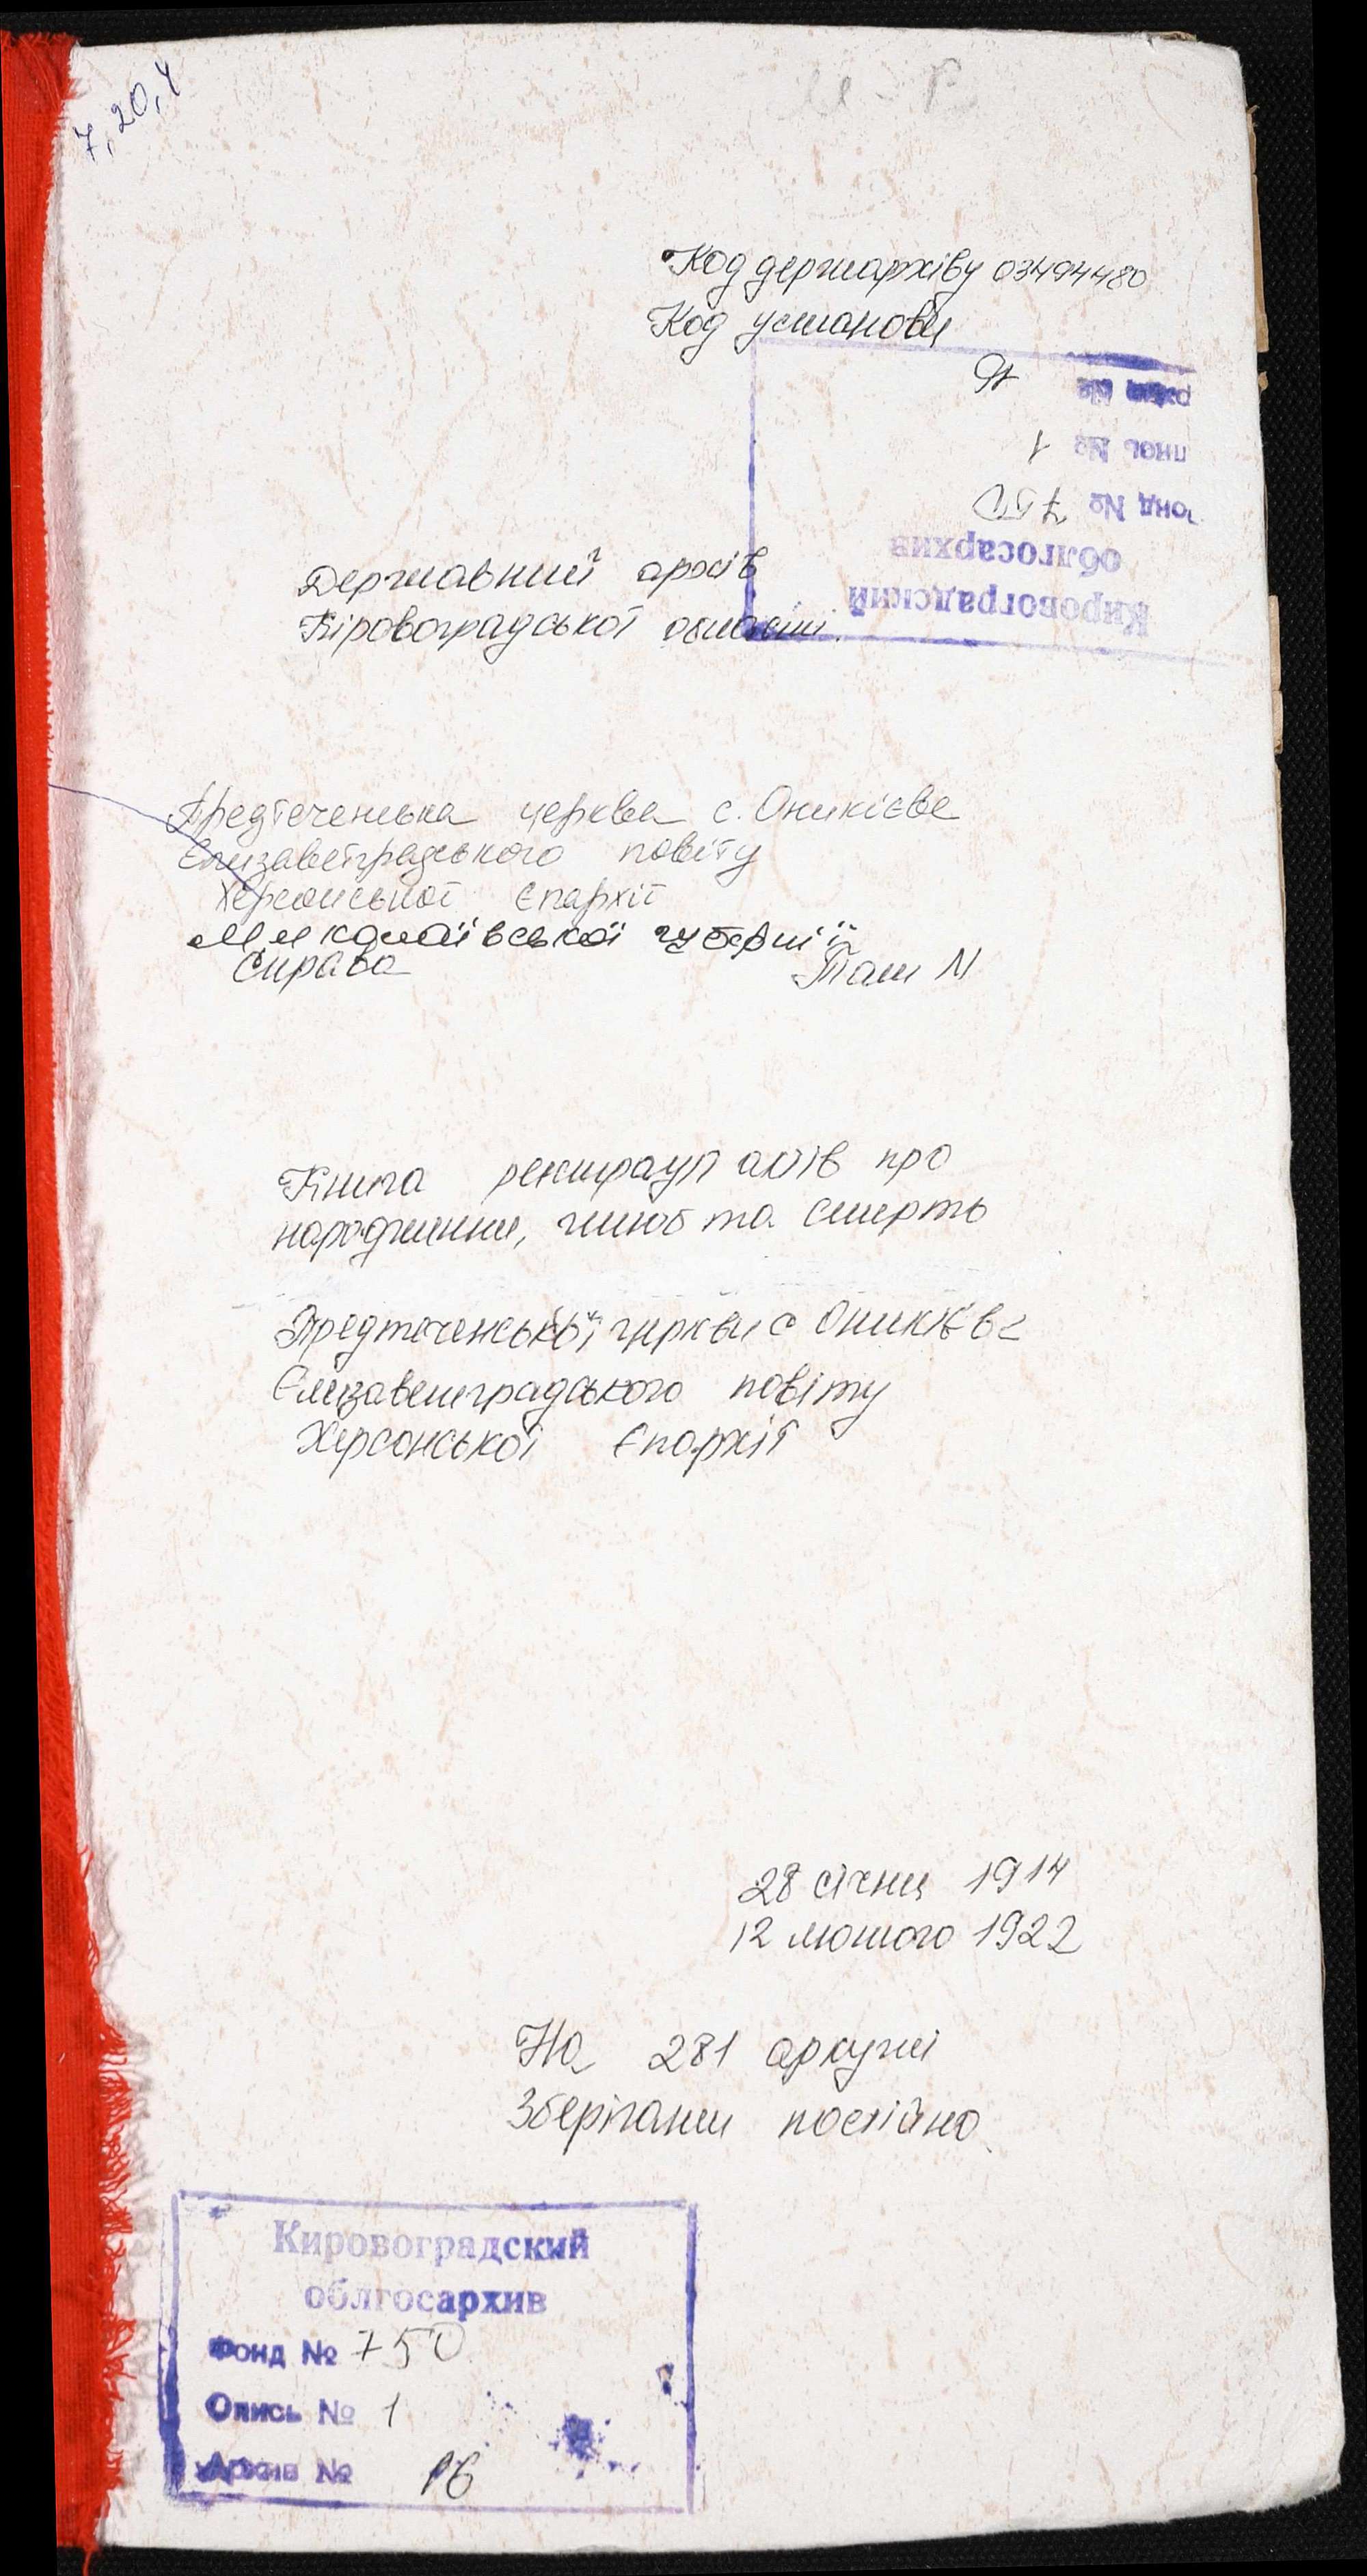 7, 20, 4
Код держархіву 03494480
Код установи
Кировоградский
облгосархив
онд № 750
пись № 1
16
Державний архів
Кіровоградської області.
Предтеченська церква с. Оникієве
Єлизаветградського повіту
Херсонської Єпархії
Миколаївської губернії
Справа Том N
Книга реєстрації актів про
народження, шлюб та смерть
Предтеченської церкви с Оникієве
Єлизаветградського повіту
Херсонської Єпархії
28 січня 1914
12 лютого 1922
На 281 аркуші
Зберігати постійно
Кировоградский
облгосархив
Фонд № 750
Опись № 1
Архив № 16